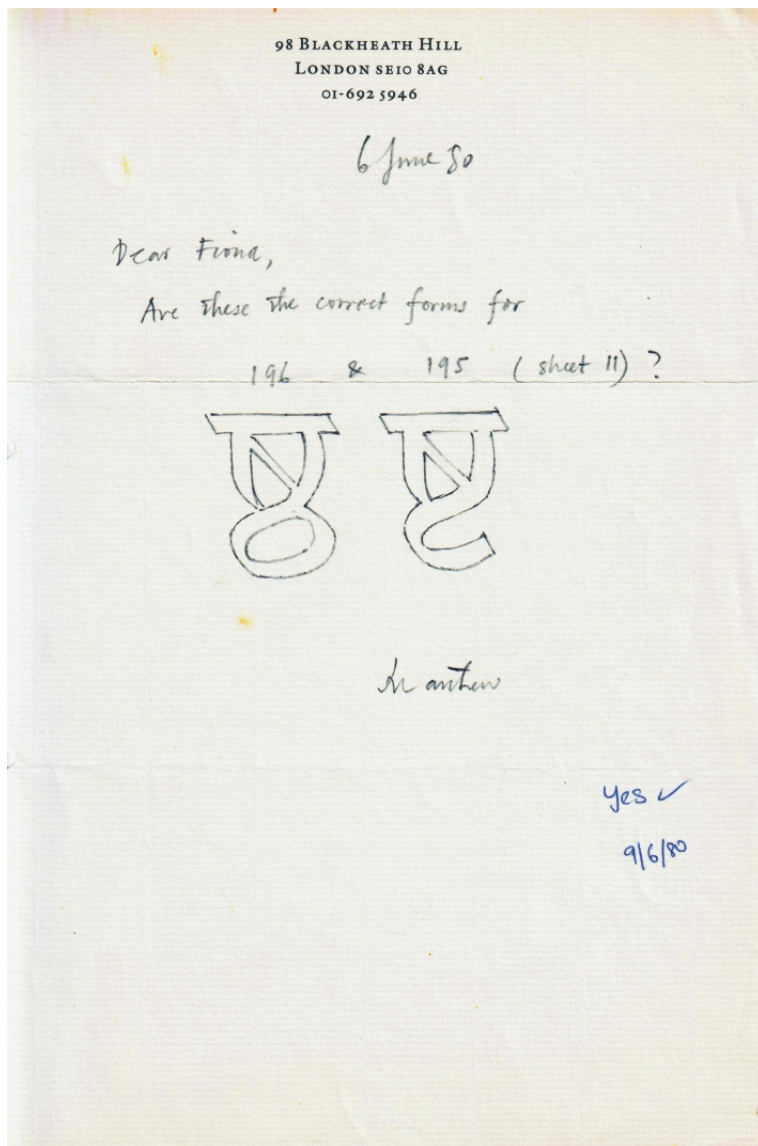 98 BLACKHEATH HILL
LONDON SE10 8AG
01-692 5946
6 June 80
Dear Fiona,
Are these the correct forms for
196 & 195 (sheet 11) ?
ষ্ঠ ষ্ট
Matthew
Yes ✓
9/6/80